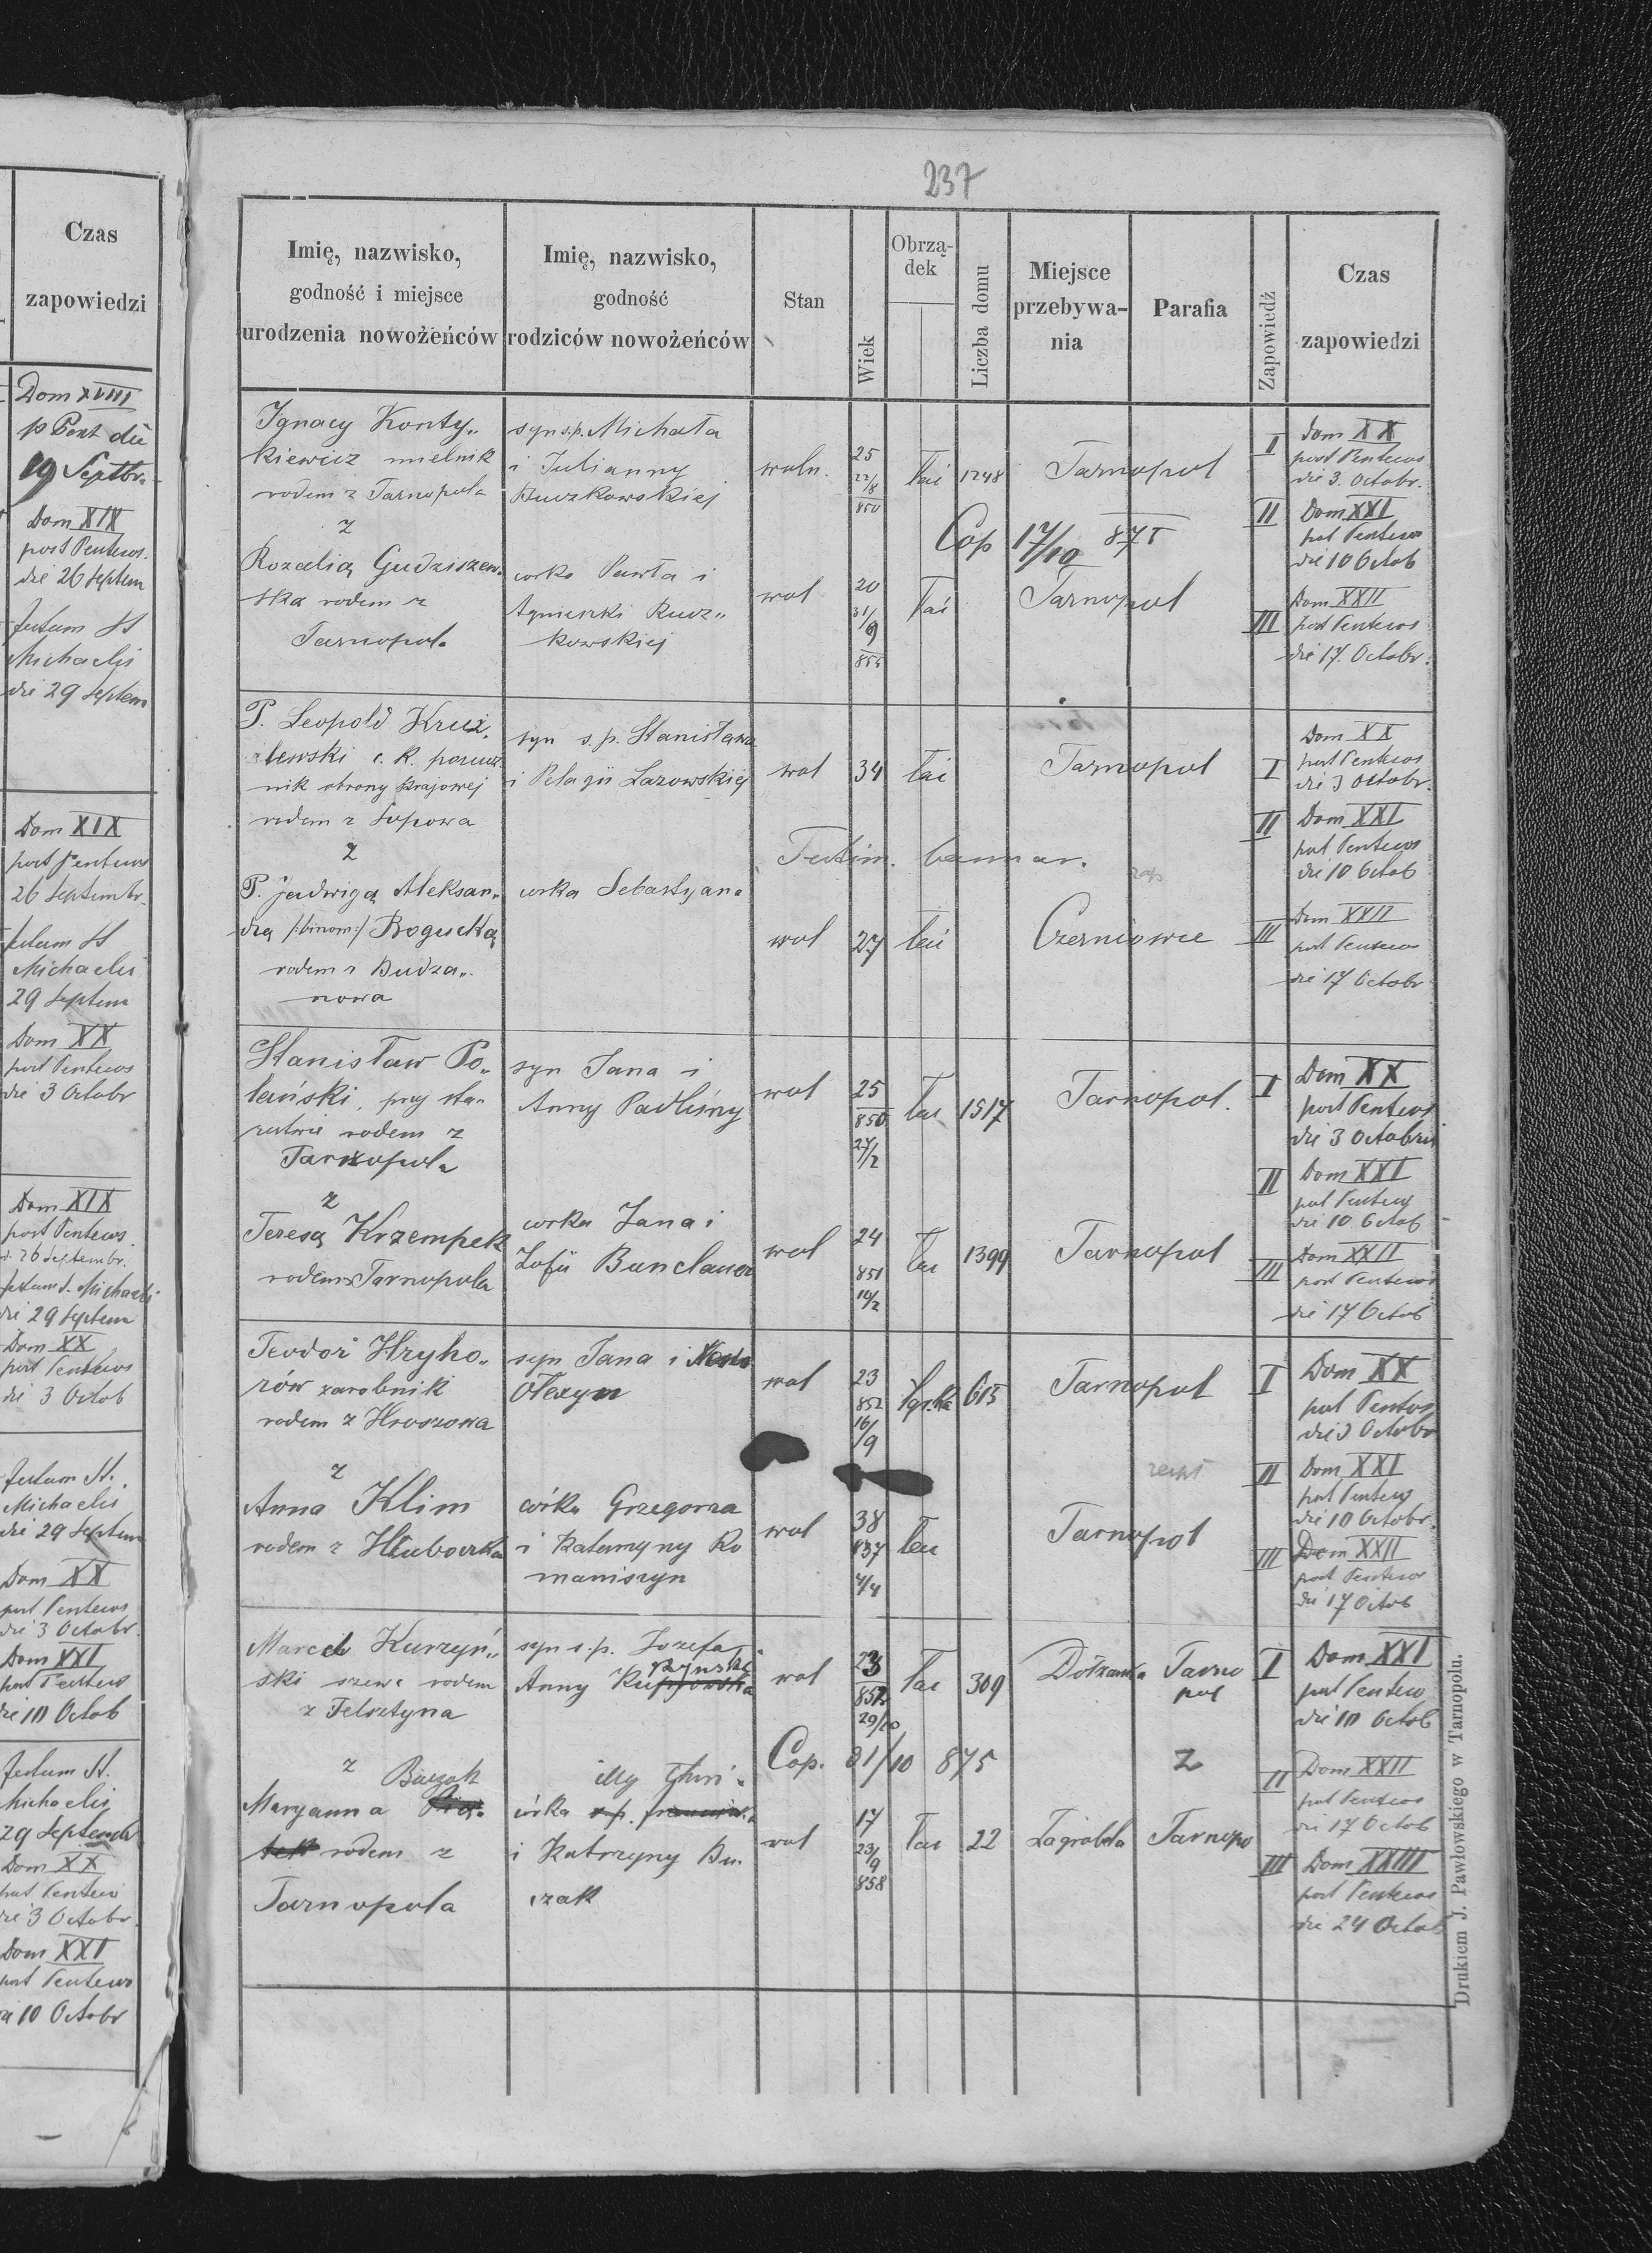 Czas
zapowiedzi
Dom XVIII
p Pent die
19 Septbr.
Dom XIX
post Pentecos.
die 26 Septem
festum St
Michaelis
die 29 Septem
Dom XIX
post Pentecos
26 Septembr.
festum St
Michaelis
29 Septem
Dom XX
post Pentecos
die 3 Octobr
Dom XIX
post Pentecos.
d. 26 Septembr.
festum S. Michaelis
die 29 Septem
Dom XX
post Pentecos
die 3 Octob
festum St.
Michaelis
die 29 Septem
Dom XX
post Pentecos
die 3 Octobr.
Dom XXI
post Pentecos
die 10 Octob
festum St.
Michaelis
29 Septemb
Dom XX
post Pentecos
die 3 Octobr.
Dom XXI
post Pentecos
die 10 Octobr
237
Imię, nazwisko,
godność i miejsce
urodzenia nowożeńców
Imię, nazwisko,
godność
rodziców nowożeńców
Stan
Wiek
Obrzą-
dek
Liczba domu
Miejsce
przebywa-
nia
Parafia
Zapowiedź
Czas
zapowiedzi
Ignacy Konty„
kiewicz mielnik
rodem z Tarnopola
z
Rozalią Gudziszew„
ska rodem z
Tarnopola
syn s.p. Michała
i Julianny
Buczkowskiej
corka Pawła i
Agnieszki Rucz„
kowskiej
woln.
25
22/8
850
łać
1248
Tarnopol
Cop 17/10 875
wol
20
31/
9
855
łać
Tarnopol
I
Dom XX
post Pentecos
die 3. Octobr.
II
Dom XXI
post Pentecos
die 10 Octob
III
Dom XXII
post Pentecos
die 17. Octobr.
P. Leopold Kruż„
lewski c. k. porucz
nik obrony krajowej
rodem z Łopowa
z
P. Jadwigą Aleksan„
drą /:binom:/ Bogucką
rodem z Budza„
nowa
syn s. p. Stanisława
i Pelagii Łazowskiej
corka Sebastyana
wol
34
łać
Tarnopol
Testim. bannor.
wol
27
łać
Czerniowce
I
Dom XX
post Pentecos
die 3 Octobr.
II
Dom XXI
post Pentecos
die 10 Octob
III
Dom XXII
post Pentecos
die 17 Octobr
Stanisław Po„
lański, przy sta„
rostwie rodem z
Tarnopola
z
Teresą Krzempek
rodem z Tarnopola
syn Jana i
Anny Padliśny
corka Jana i
Zofii Bunclauer
wol
25
850
27/2
łac
1517
Tarnopol.
wol
24
851
14/2
łac
1399
Tarnopol
I
Dom XX
post Pentecos
die 3 Octobris
II
Dom XXI
post Pentecos
die 10 Octob
III
Dom XXII
post Pentecos
die 17 Octob
Teodor Hryho„
rów zarobnik
rodem z Hroszowa
z
Anna Klim
rodem z Hłuboczka
syn Jana i
Olexyn
córka Grzegorza
i Katarzyny Ro
maniszyn
wol
23
852
16/
9
gr.k.
615
Tarnopol
wol
38
837
4/4
łac
Tarnopol
I
Dom XX
post Pentecos
die 3 Octobr
II
Dom XXI
post Pentecos
die 10 Octobr.
III
Dom XXII
post Pentecos
die 17 Octob
Marceli Kurzyń„
ski szewc rodem
z Felsztyna
z Buczak
Maryanna
rodem z
Tarnopola
syn s.p. Jozefa
Anny
illeg Thori
córka s.p.
i Katarzyny Bu„
czak
wol
23
852
29/10
łac
309
Dołzanka
Tarno
pol
Cop. 31/10 875
z
wol
17
23/
9
858
łac
22
Zagrobela
Tarnopo
I
Dom XXI
post Pentecos
die 10 Octob
II
Dom XXII
post Pentecos
die 17 Octob
III
Dom XXIII
post Pentecos
die 24 Octob
Drukiem J. Pawłowskiego w Tarnopolu.